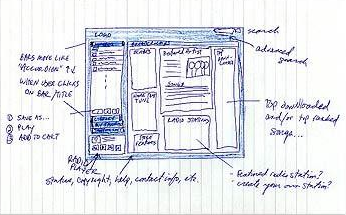 LOGO
search
advanced
search
BARS MOVE LIKE
"ACCORDIAN" ↑↓
WHEN USER CLICKS
ON BAR/TITLE
① SAVE AS...
② PLAY
③ ADD TO CART
Featured Artist
SONGS
RADIO STATIONS
RADIO
PLAYER
Top downloaded
and/or top ranked
songs...
status, copyright, help, contact info, etc.
- Featured radio station?
create your own station?